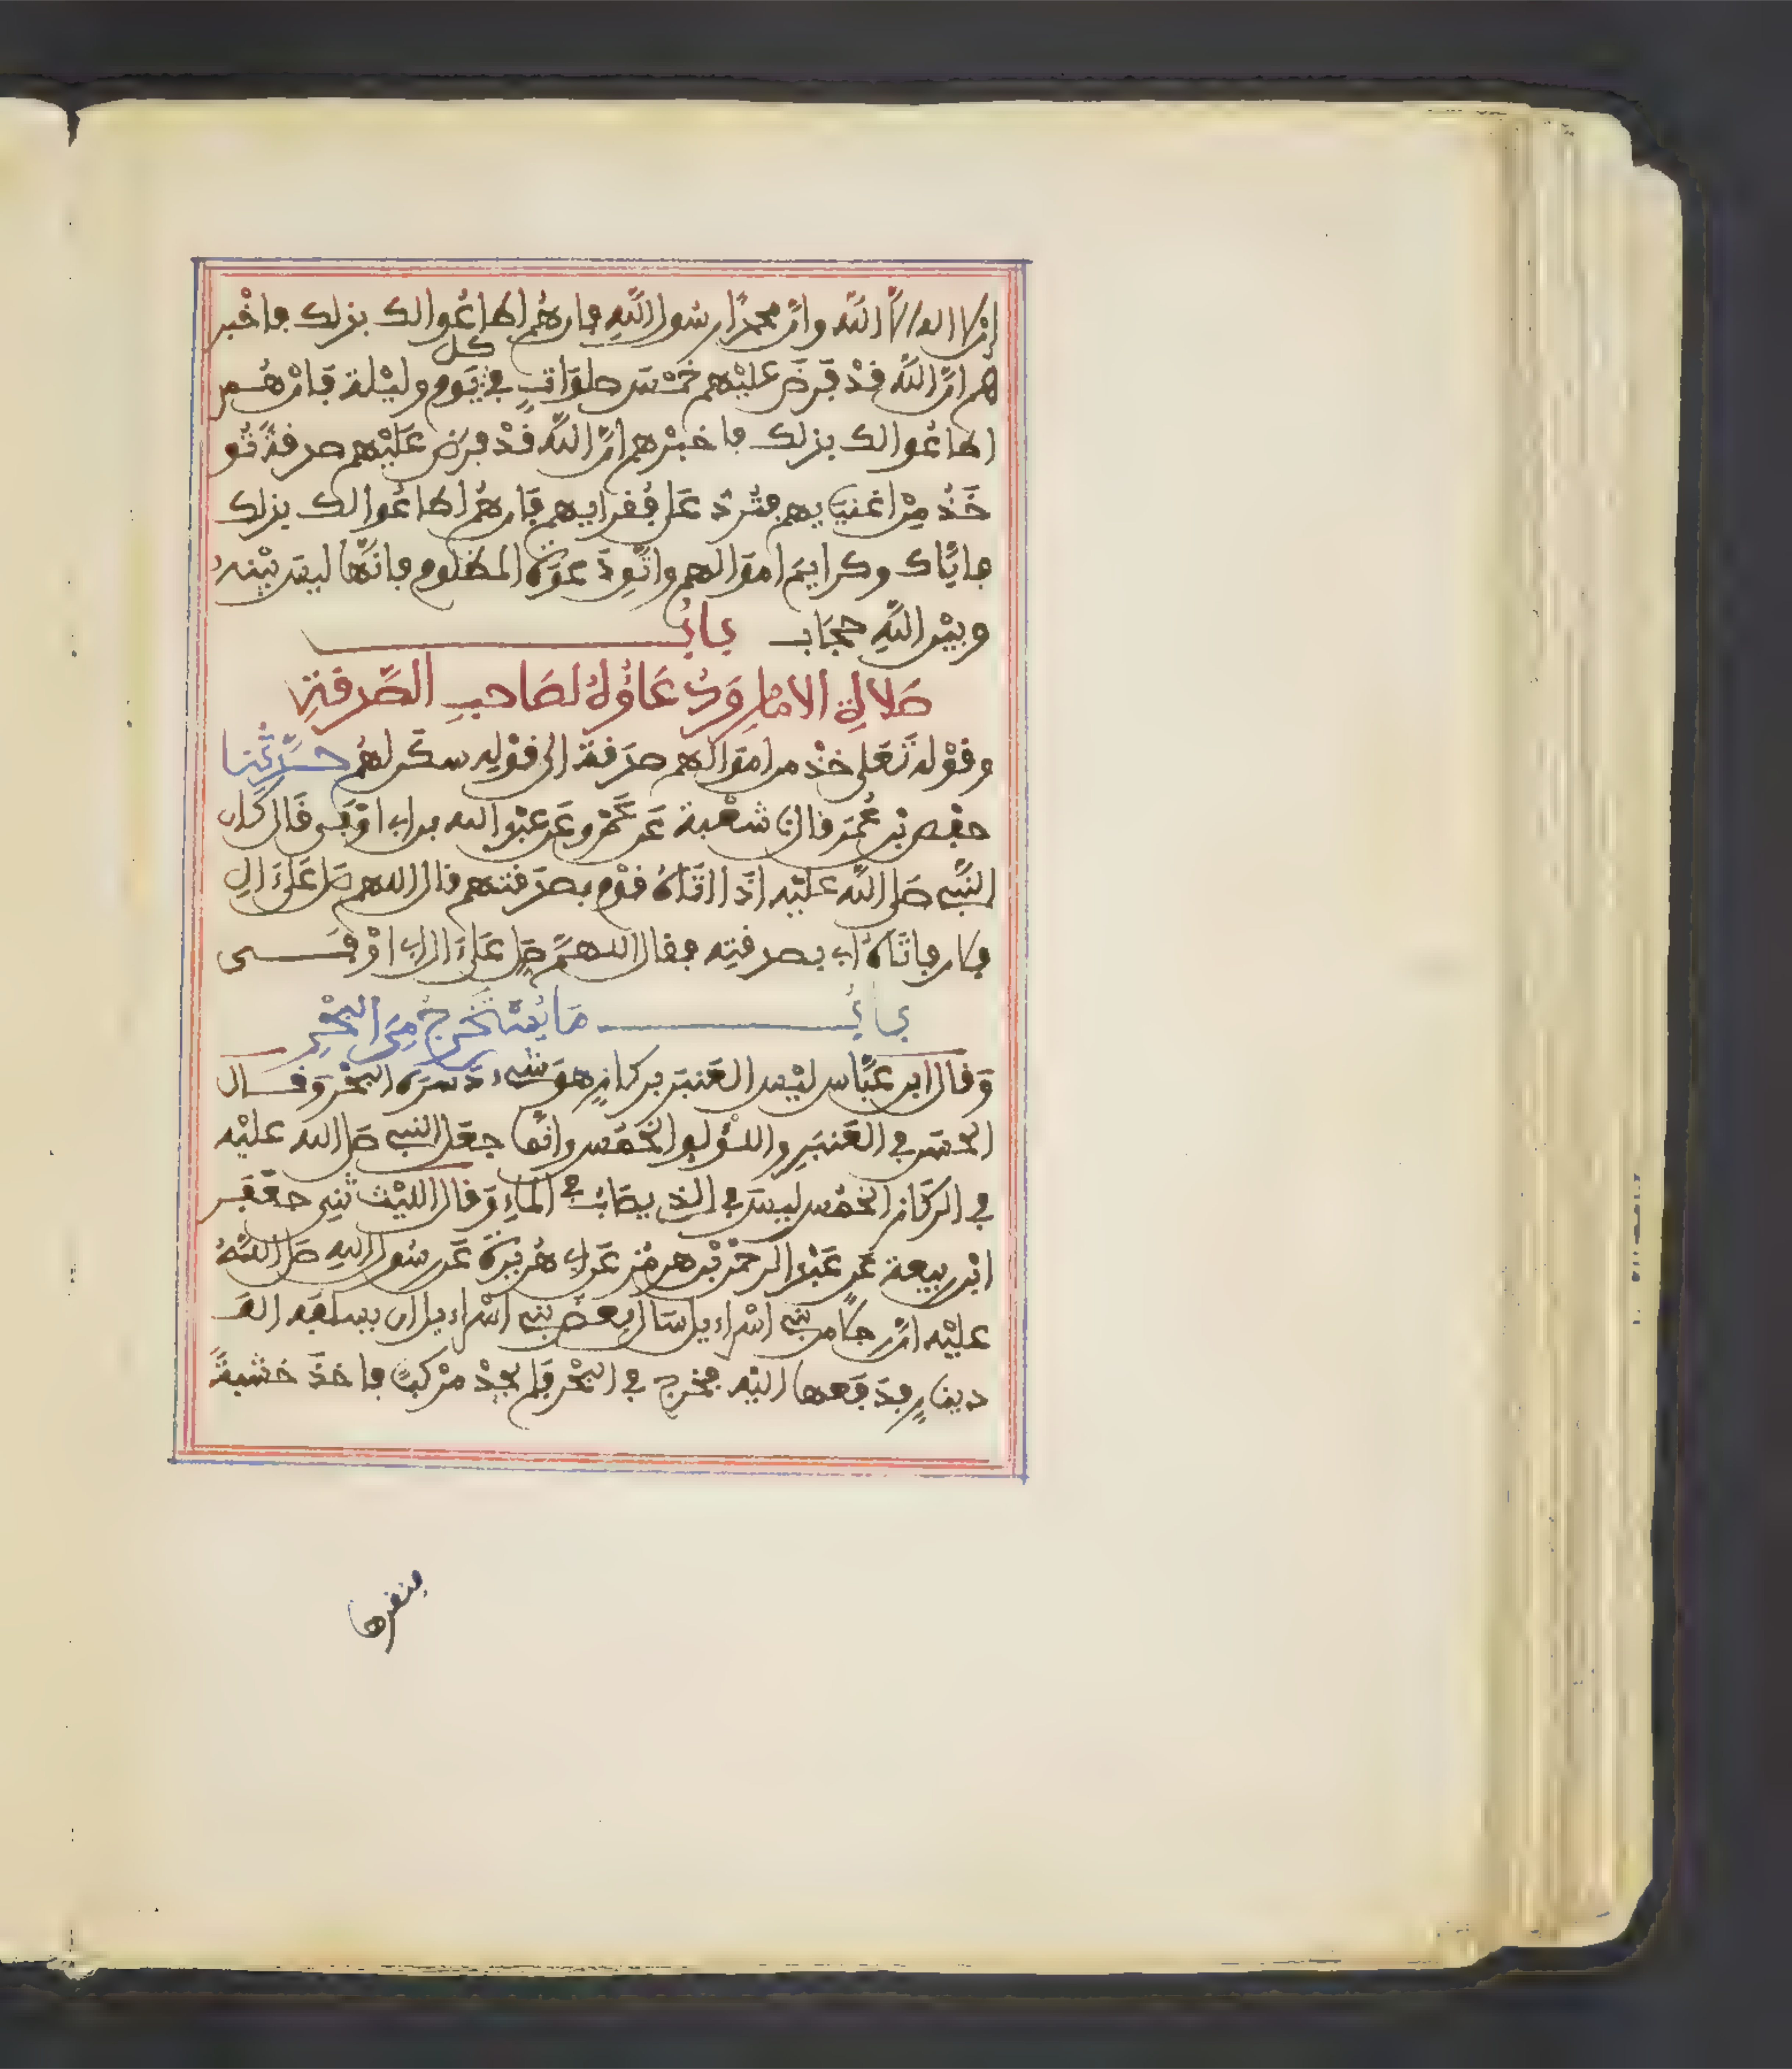 ان لا اله الا الله وان محمدا رسول الله فان هم اطاعوا لك بذلك فاخبر
هم ان الله قد فرض عليهم خمس صلوات في كل يوم وليلة فان هم
اطاعوا لك بذلك فاخبرهم ان الله قد فرض عليهم صدقة تو
خذ من اغنيايهم فترد على فقرايهم فان هم اطاعوا لك بذلك
فاياك وكرايم اموالهم واتق دعوة المظلوم فانها ليس بينه
وبين الله حجاب باب
صلاة الامام ودعاؤه لصاحب الصدقة
وقوله تعلى خذ من اموالهم صدقة الى قوله سكن لهم حدثنا
حفص بن عمر قال نا شعبة عن عمرو عن عبد الله بن ابي اوفى قال كان
النبي صلى الله عليه اذا اتاه قوم بصدقتهم قال اللهم صل على ءال
فلان فاتاه ابي بصدقته فقال اللهم صل على ءال ابي اوفى
باب ما يستخرج من البحر
وقال ابن عباس ليس العنبر بركاز هو شيء دسره البحر وقال
الحسن في العنبر واللؤلؤ الخمس وانما جعل النبي صلى الله عليه
في الركاز الخمس ليس في الذي يصاب في الماء وقال الليث ثني جعفر
ابن ربيعة عن عبد الرحمن بن هرمز عن ابي هريرة عن رسول الله صلى الله
عليه ان رجلا من بني اسراءيل سال بعض بني اسراءيل ان يسلفه الف
دينار فدفعها اليه فخرج في البحر فلم يجد مركبا فاخذ خشبة
فنقرها